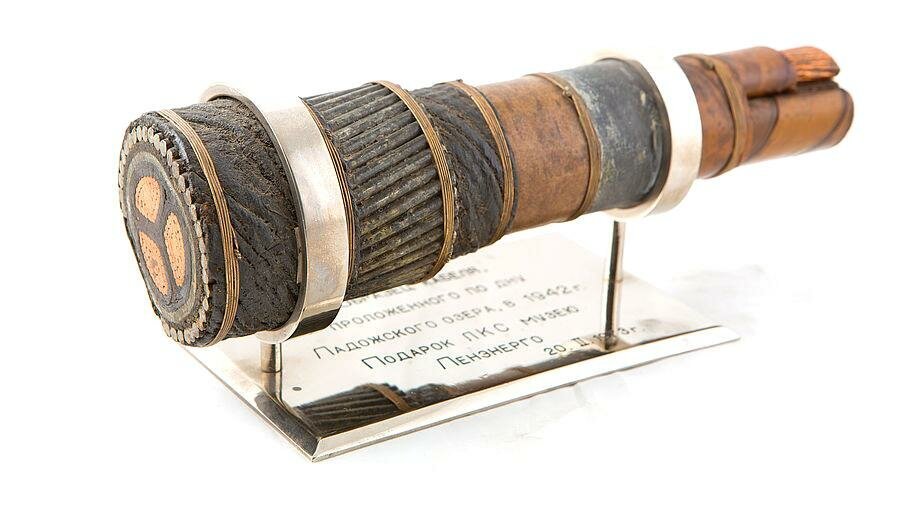 ОБРАЗЕЦ КАБЕЛЯ,
ПРОЛОЖЕННОГО ПО ДНУ
ЛАДОЖСКОГО ОЗЕРА, В 1942г.
ПОДАРОК ЛКС МУЗЕЮ
ЛЕНЭНЕРГО
20. II